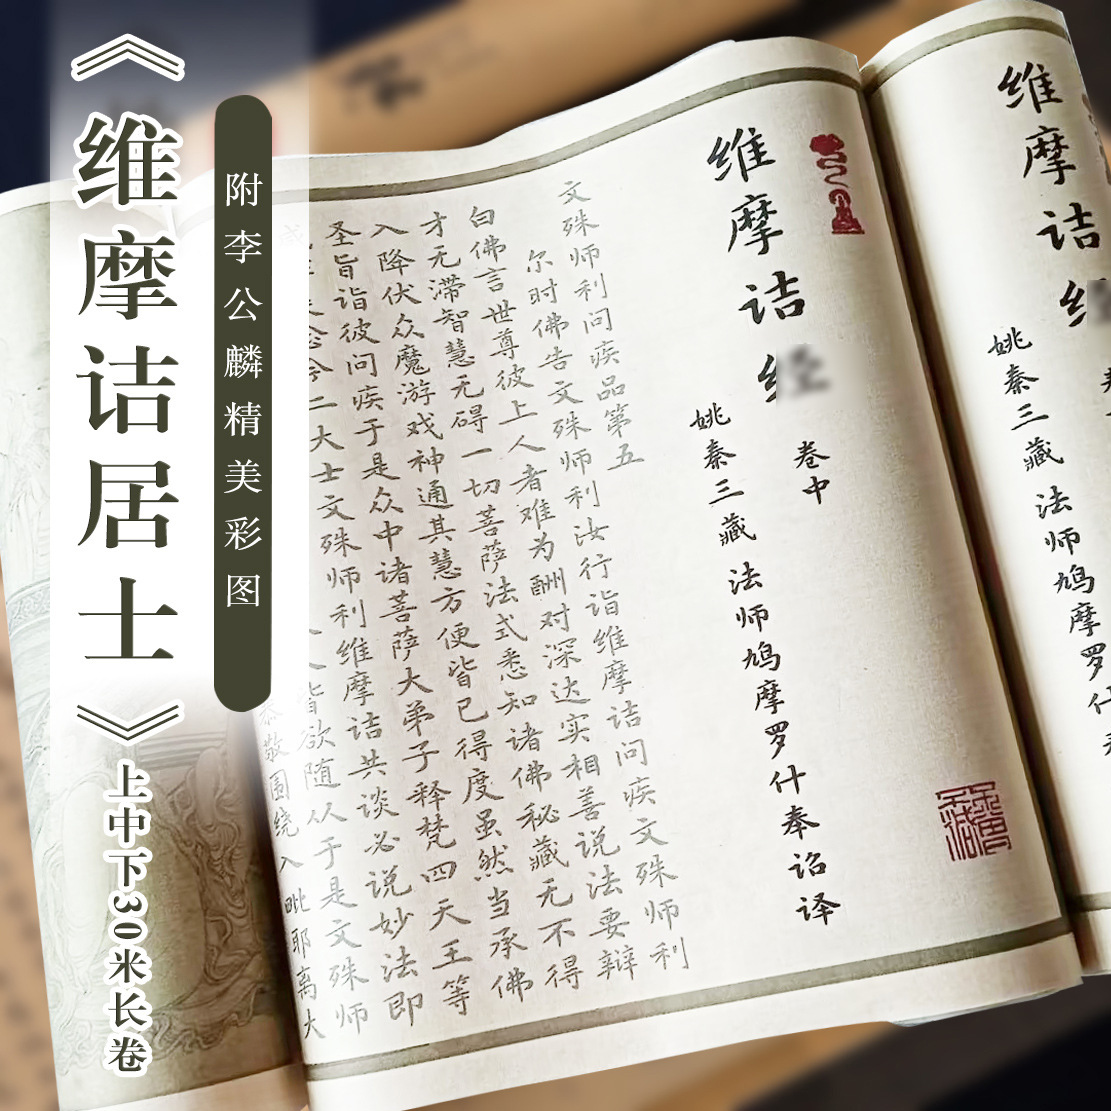 《维摩诘居士》
上中下30米长卷
附李公麟精美彩图
维摩诘
姚秦三藏法师鸠摩罗什
维摩诘经
卷中
姚秦三藏法师鸠摩罗什奉诏译
文殊师利问疾品第五
尔时佛告文殊师利汝行诣维摩诘问疾文殊师利
白佛言世尊彼上人者难为酬对深达实相善说法要辩
才无滞智慧无碍一切菩萨法式悉知诸佛秘藏无不得
入降伏众魔游戏神通其慧方便皆已得度虽然当承佛
圣旨诣彼问疾于是众中诸菩萨大弟子释梵四天王等
念今二大士文殊师利维摩诘共谈必说妙法即
人皆欲随从于是文殊师
恭敬围绕入毗耶离大